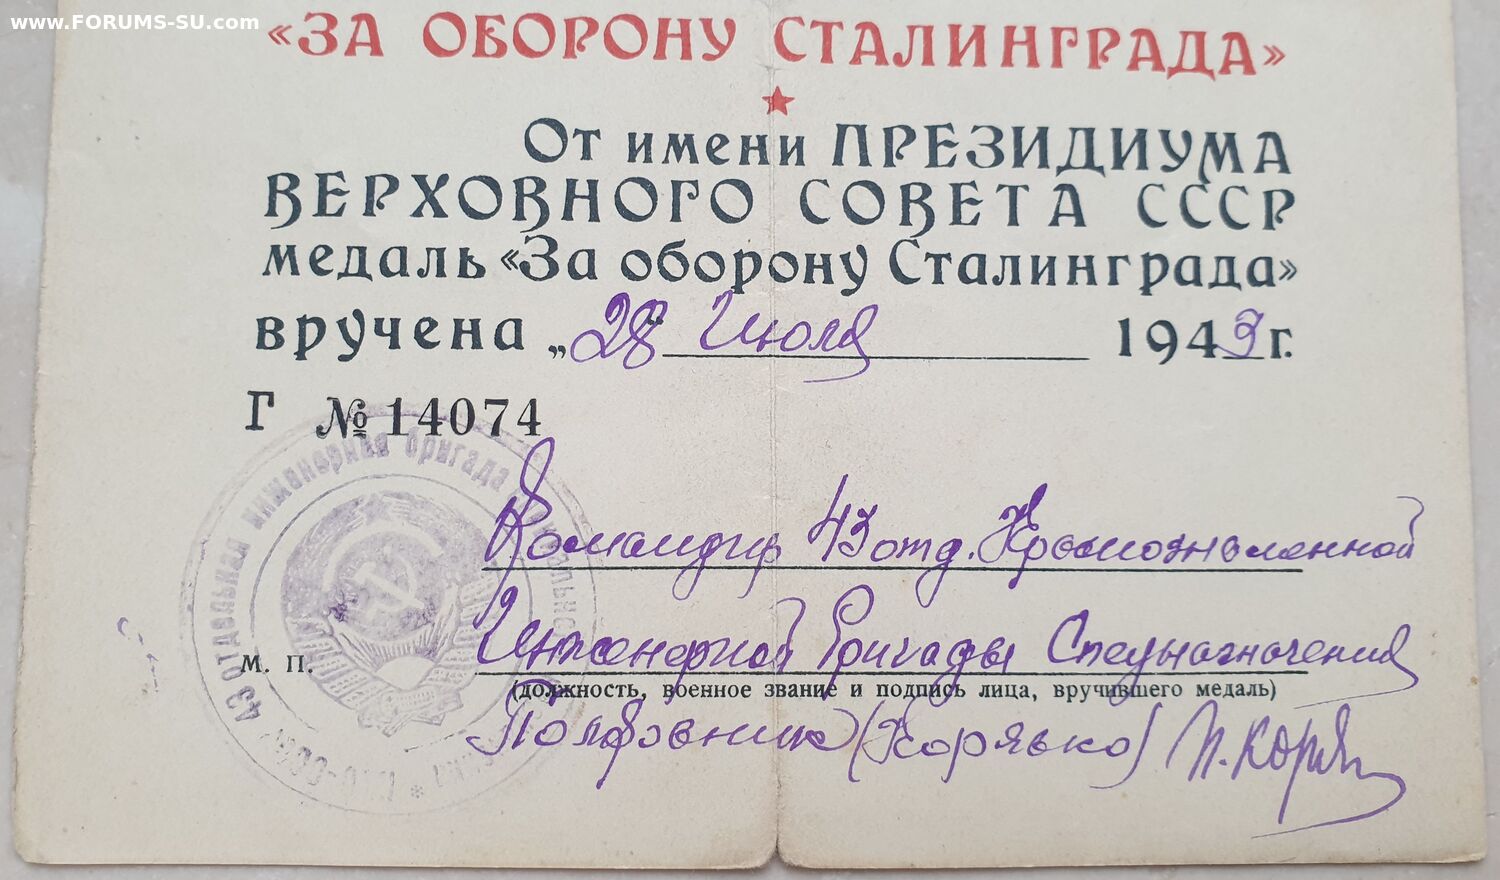 www.FORUMS-SU.com
«ЗА ОБОРОНУ СТАЛИНГРАДА»
От имени ПРЕЗИДИУМА
ВЕРХОВНОГО СОВЕТА СССР
медаль «За оборону Сталинграда»
вручена „28" Июля 1943 г.
Г № 14074
43 отдельная инженерная бригада
Командир 43 отд. Краснознаменной
Инженерной Бригады Спецназначения
М. П.
(должность, военное звание и подпись лица, вручившего медаль)
Полковник (Корявко)